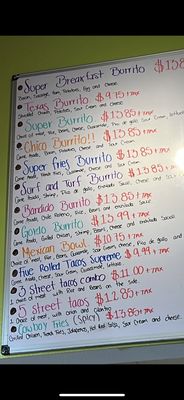 Super Breakfast Burrito $138
Bacon, Sausage, Ham, Potatoes, Egg and Cheese.
Texas Burrito $9.75+TAX
Shredded Chicken, Potatoes, Sour Cream and Cheese
Super Burrito $13.85+TAX
Choice of meat, Rice, Beans, Cheese, Guacamole, Pico de gallo, Sour Cream,
Chico Burrito!! $13.85+TAX
Carne Asada, Potatoes, Cheese and Sour Cream
Super fries Burrito $13.85+TAX
Carne Asada, French Fries, Guacamole, Cheese and Sour Cream
Surf and Turf Burrito $13.85+TAX
Carne Asada, Shrimp, Pico de gallo, Enchilada Sauce, Cheese and
Bandido Burrito $13.85+TAX
Carne Asada, Chile Relleno, Rice, Beans and enchilada Sauce
Gordo Burrito $15.99+TAX
Carne Asada, Chicken, Shrimp, Beans, Cheese and Enchilada Sauce
Mexican Bowl $10.75+TAX
Choice of meat, Rice, Beans, Guacamole, Sour Cream, Cheese, Pico de gallo and
Five Rolled Tacos Supreme $9.99+TAX
Carne Asada, Cheese, Sour Cream, Guacamole, Lettuce.
3 street tacos combo $11.00+TAX
1 choice of meat with Rice and Beans on the side.
5 street tacos $12.85+TAX
1 choice of meat with onion and cilantro
Cowboy Fries (Spicy) $13.85+TAX
Grilled Chicken, French Fries, Jalapeños, Hot Red Salsa, Sour Cream and Cheese.